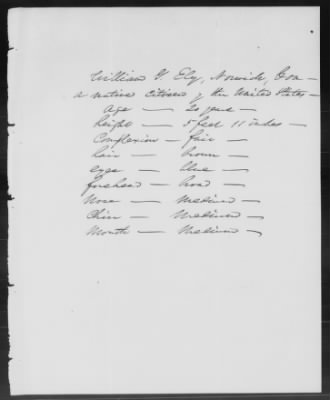 William G. Ely, Norwich, Con —
a native citizen of the United States —
Age — 20 years —
height — 5 feet 11 inches —
Complexion — fair —
hair — brown —
eyes — blue —
forehead — broad —
Nose — Medium —
Chin — Medium —
Mouth — Medium —